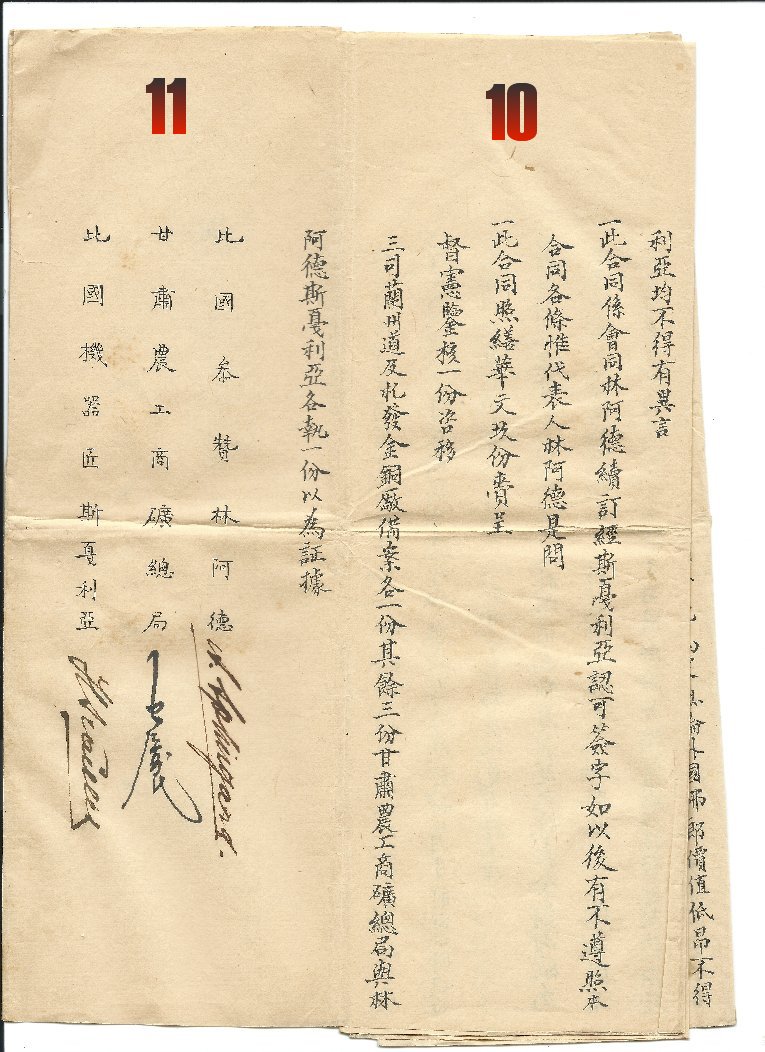 10
外國那郎價值低昂不得
利亞均不得有異言
一此合同係會同林阿德續訂經斯戞利亞認可簽字如以後有不遵照本
合同各條惟代表人林阿德是問
一此合同照繕華文玖份賷呈
督憲鑒核一份咨移
三司蘭州道及札發金銅廠備案各一份其餘三份甘肅農工商礦總局與林
11
阿德斯戞利亞各執一份以為証據
比國叅贊林阿德
甘肅農工商礦總局
比國機器匠斯戞利亞